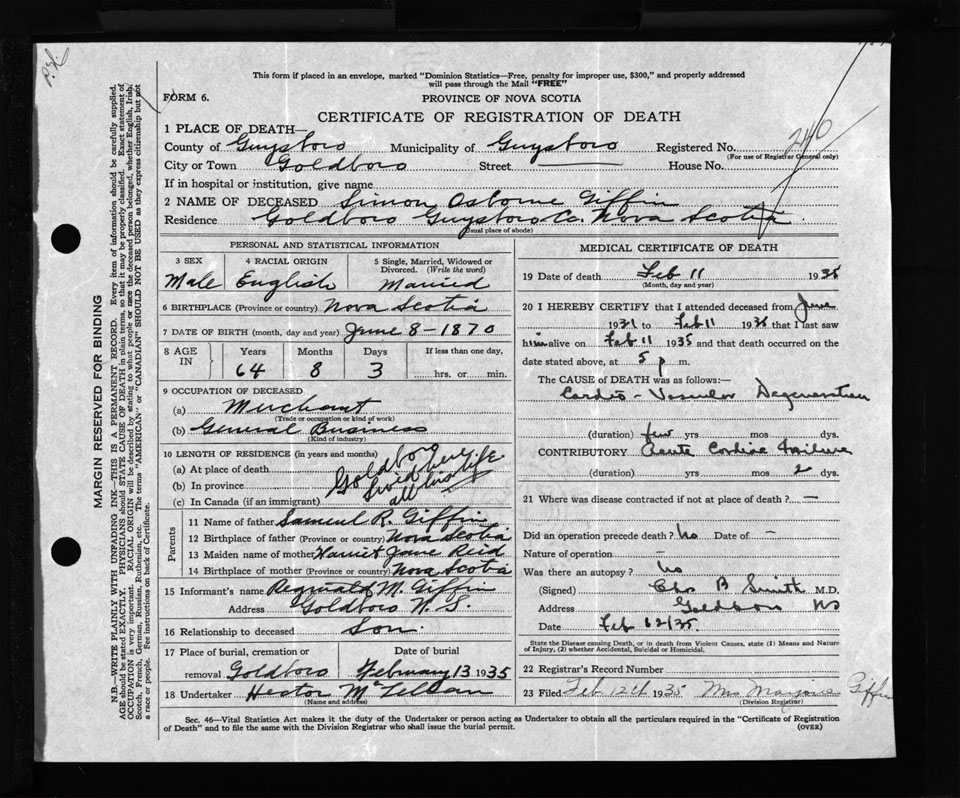 P.H.
240
This form if placed in an envelope, marked "Dominion Statistics—Free, penalty for improper use, $300," and properly addressed
will pass through the Mail "FREE"
FORM 6.
PROVINCE OF NOVA SCOTIA
CERTIFICATE OF REGISTRATION OF DEATH
1 PLACE OF DEATH—
County of Guysboro Municipality of Guysboro Registered No.
(For use of Registrar General only)
City or Town Goldboro Street House No.
If in hospital or institution, give name
2 NAME OF DECEASED Simon Osborne Giffin
Residence Goldboro Guysboro Co. Nova Scotia
(Usual place of abode)
PERSONAL AND STATISTICAL INFORMATION
3 SEX 4 RACIAL ORIGIN 5 Single, Married, Widowed or
Divorced. (Write the word)
Male English Married
6 BIRTHPLACE (Province or country) Nova Scotia
7 DATE OF BIRTH (month, day and year) June 8 - 1870
8 AGE IN Years Months Days If less than one day,
64 8 3 hrs. or min.
9 OCCUPATION OF DECEASED
(a) Merchant
(Trade or occupation or kind of work)
(b) General Business
(Kind of industry)
10 LENGTH OF RESIDENCE (in years and months)
(a) At place of death
(b) In province
(c) In Canada (if an immigrant)
Goldboro
lived here
all his life
Parents
11 Name of father Samuel R. Giffin
12 Birthplace of father (Province or country) Nova Scotia
13 Maiden name of mother Harriet Jane Reid
14 Birthplace of mother (Province or country) Nova Scotia
15 Informant's name Reginald M. Giffin
Address Goldboro N.S.
16 Relationship to deceased Son.
17 Place of burial, cremation or Date of burial
removal Goldboro February 13 1935
18 Undertaker Hector McLellan
(Name and address)
MEDICAL CERTIFICATE OF DEATH
19 Date of death Feb 11 1935
(Month, day and year)
20 I HEREBY CERTIFY that I attended deceased from June
1931 to Feb 11 1935 that I last saw
him alive on Feb 11 1935 and that death occurred on the
date stated above, at 5 p m.
The CAUSE OF DEATH was as follows:—
Cardio - Vascular Degeneration
(duration) few yrs mos dys.
CONTRIBUTORY Acute Cardiac Failure
(duration) yrs mos 2 dys.
21 Where was disease contracted if not at place of death? —
Did an operation precede death? No Date of —
Nature of operation —
Was there an autopsy? No
(Signed) Chs B Smith M.D.
Address Goldboro NS
Date Feb 12/35
State the Disease causing Death, or in death from Violent Causes, state (1) Means and Nature
of Injury, (2) whether Accidental, Suicidal or Homicidal.
22 Registrar's Record Number
23 Filed Feb 12th 1935 Mrs Marjorie Giffin
(Division Registrar)
Sec. 46—Vital Statistics Act makes it the duty of the Undertaker or person acting as Undertaker to obtain all the particulars required in the "Certificate of Registration
of Death" and to file the same with the Division Registrar who shall issue the burial permit. (OVER)
MARGIN RESERVED FOR BINDING
N.B.—WRITE PLAINLY WITH UNFADING INK—THIS IS A PERMANENT RECORD. Every item of information should be carefully supplied.
AGE should be stated EXACTLY. PHYSICIANS should STATE CAUSE OF DEATH in plain terms, so that it may be properly classified. Exact statement of
OCCUPATION is very important. RACIAL ORIGIN will be described by stating to what people or race the deceased person belonged, whether English, Irish,
Scotch, French, German, Russian, Ruthenian, etc. The terms "AMERICAN" or "CANADIAN" SHOULD NOT BE USED as they express citizenship but not
a race or people. See instructions on back of Certificate.